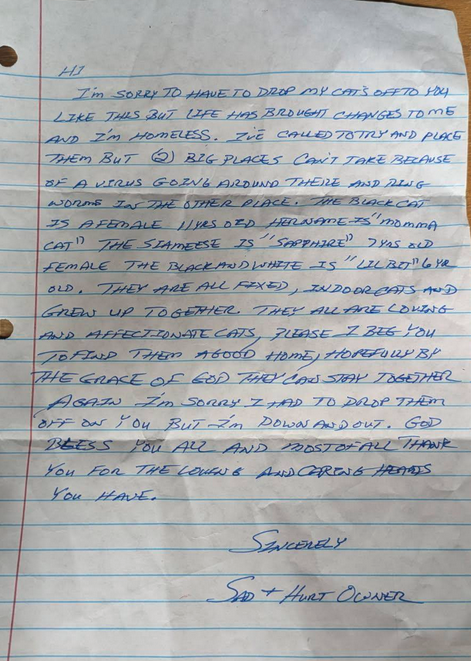 HI
I'M SORRY TO HAVE TO DROP MY CAT'S OFF TO YOU
LIKE THIS BUT LIFE HAS BROUGHT CHANGES TO ME
AND I'M HOMELESS. I'VE CALLED TO TRY AND PLACE
THEM BUT (2) BIG PLACES CAN'T TAKE BECAUSE
OF A VIRUS GOING AROUND THERE AND RING
WORMS IN THE OTHER PLACE. THE BLACK CAT
IS A FEMALE 11YRS OLD HER NAME IS "MOMMA
CAT" THE SIAMEESE IS "SAPPHIRE" 7 YRS OLD
FEMALE THE BLACK AND WHITE IS "LIL BIT" 6 YR
OLD. THEY ARE ALL FIXED, INDOOR CATS AND
GREW UP TOGETHER. THEY ALL ARE LOVING
AND AFFECTIONATE CATS, PLEASE I BEG YOU
TO FIND THEM A GOOD HOME, HOPEFULLY BY
THE GRACE OF GOD THEY CAN STAY TOGETHER
AGAIN I'M SORRY I HAD TO DROP THEM
OFF ON YOU BUT I'M DOWN AND OUT. GOD
BLESS YOU ALL AND MOST OF ALL THANK
YOU FOR THE LOVING AND CARING HEARTS
YOU HAVE.
SINCERELY
SAD + HURT OWNER